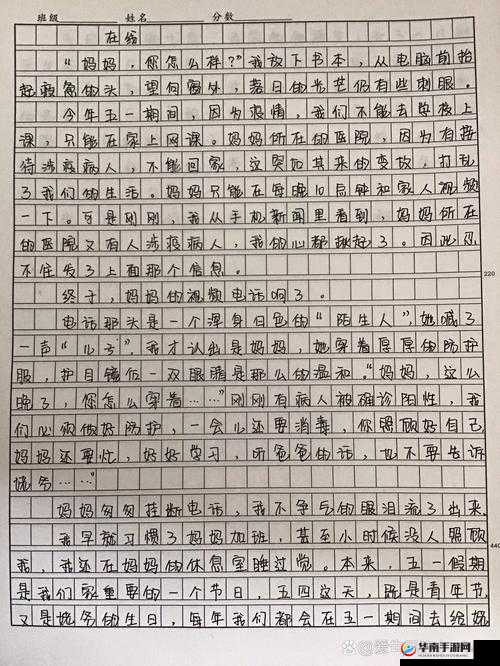 班级 姓名 分数
在线
“妈妈,您怎么样?”我放下书本,从电脑前抬
起疲惫的头,望向窗外,落日的光芒仍有些刺眼。
今年五一期间,因为疫情,我们不能去学校上
课,只能在家上网课。妈妈所在的医院,因为有接
待涉疫病人,不能回家,这突如其来的变故,打乱
了我们的生活。妈妈只能在每晚10点钟和家人视频
一下。可是刚刚,我从手机新闻里看到,妈妈所在
的医院又有人涉疫病人,我的心都揪起了。因此忍
不住发了上面那个信息。
220
终于,妈妈的视频电话响了。
电话那头是一个浑身白色的“陌生人”,她喊了
一声“儿子”,我才认出是妈妈,她穿着厚厚的防护
服,护目镜后一双眼睛是那么的温和。“妈妈,这么
晚了,您怎么穿着……”刚刚有病人被确诊阳性,我
们必须做好防护,一会儿还要消毒,你照顾好自己
妈妈还要忙,好好学习,听爸爸的话,也不要告诉
姥爷……”
妈妈匆匆挂断电话,我不争气的眼泪流了出来
我早就习惯了妈妈加班,甚至小时候没人照顾
440
我,我还在妈妈的休息室睡过觉。本来,五一假期
是我们家重要的一个节日,五四这天,既是青年节
又是姥爷的生日,每年我们都会在五一期间去给姥
华南手游网